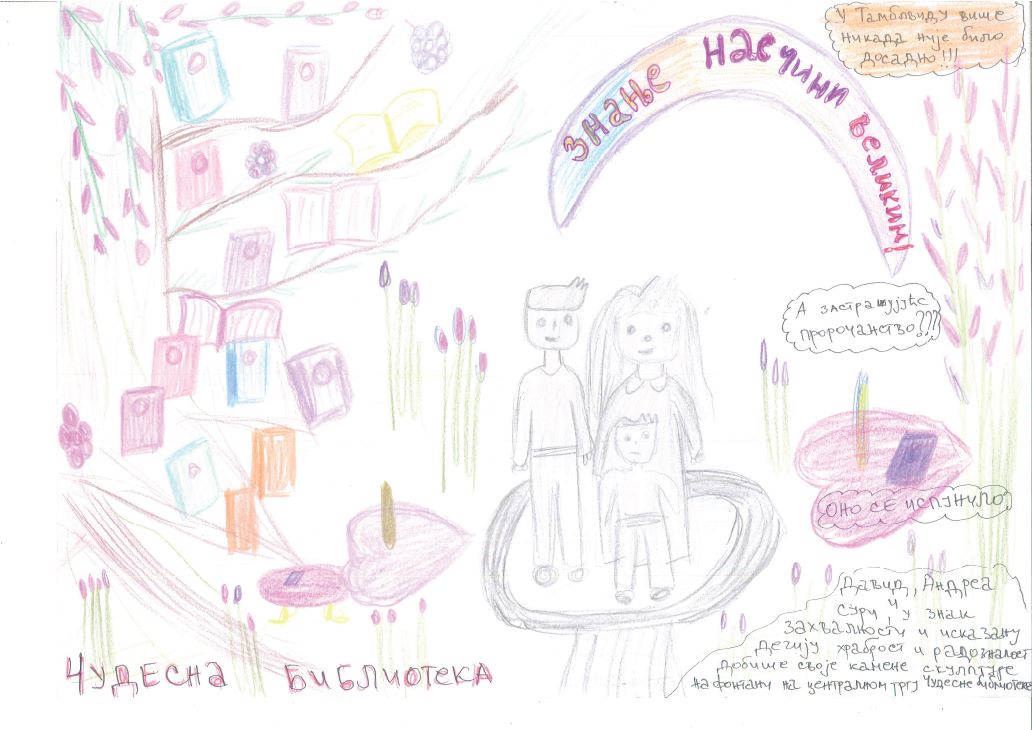 У Тамбљвиду више
никада није било
досадно!!!
Знање нас чини великим!
А застрашујуће
пророчанство???
Оно се испунило
Давид, Андреа
Сури, у знак
захвалности и исказану
дечију храброст и радозналост
добише своје камене скулптуре
на фонтани на централном тргу Чудесне библиотеке
ЧУДЕСНА БИБЛИОТЕКА